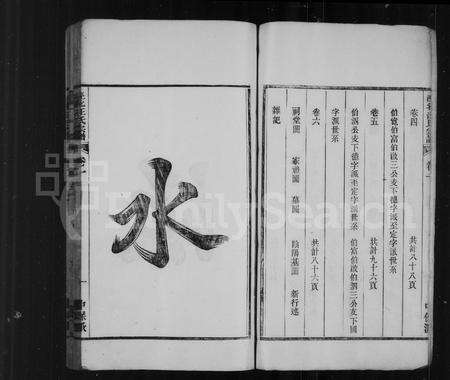 卷四 共計八十八頁
伯寬伯富伯啟三公支下德字派至定字派世系
卷五 共計九十六頁
伯泗公支下德字派至定字派世系 伯富伯啟伯泗三公支下國
字派世系
卷六 共計八十六頁
祠堂圖 家廟圖 墓圖 陰陽基圖 新行述
雜記
水
FamilySearch